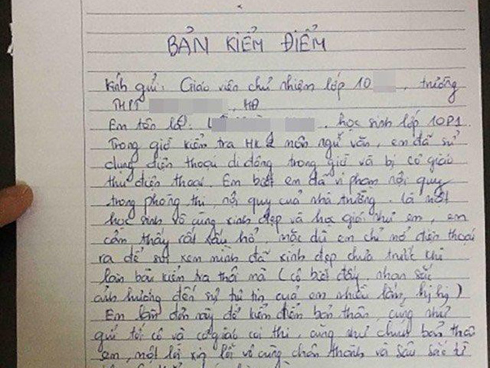 BẢN KIỂM ĐIỂM
Kính gửi: Giáo viên chủ nhiệm lớp 10 , trường
THPT , HĐ
Em tên là: , học sinh lớp 10P1
Trong giờ kiểm tra HK2 môn ngữ văn, em đã sử
dụng điện thoại di động trong giờ và bị cô giáo
thu điện thoại. Em biết em đã vi phạm nội quy
trong phòng thi, nội quy của nhà trường. Là một
học sinh vô cùng xinh đẹp và học giỏi như em, em
cảm thấy rất xấu hổ, mặc dù em chỉ mở điện thoại
ra để soi xem mình đã xinh đẹp chưa trước khi
làm bài kiểm tra thôi mà (cô biết đấy, nhan sắc
ảnh hưởng đến sự tự tin của em nhiều lắm, hị hị)
Em viết đơn này để kiểm điểm bản thân, cũng như
gửi tới cô và cô giáo coi thi, cũng như chính bản thân
em, một lời xin lỗi vô cùng chân thành và sâu sắc từ